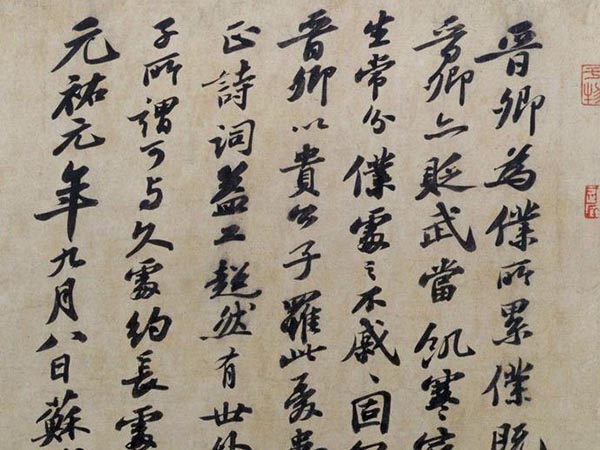 晉卿為僕所累僕既
晉卿亦貶武當飢寒窮
生常分僕處之不戚戚固
晉卿以貴公子罹此憂患
正詩詞益工超然有世外
子所謂可与久處約長處
元祐元年九月八日蘇